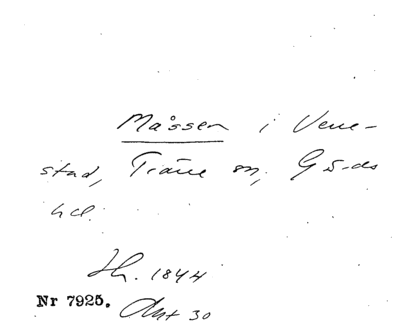 Måssen i Vene-
stad, Träne sn, Gärds
hd.
Hr. 1844
Nr 7925. Akt 30